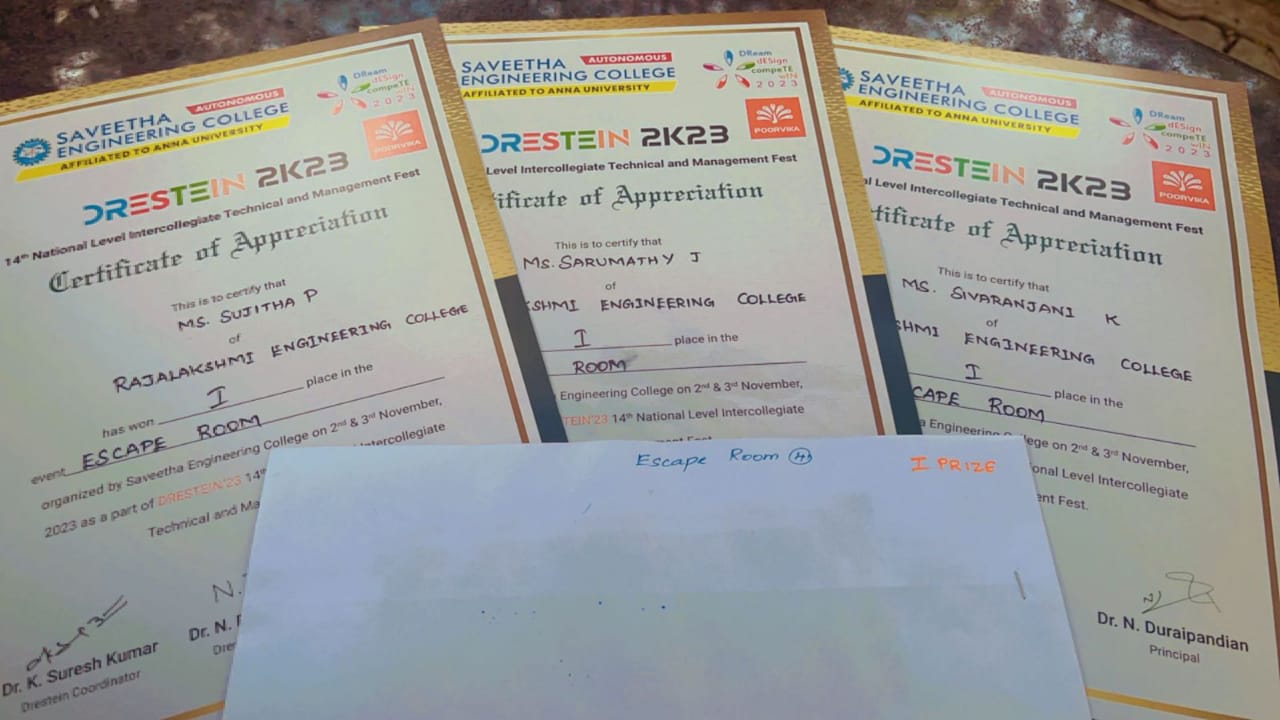 SAVEETHA AUTONOMOUS
ENGINEERING COLLEGE
AFFILIATED TO ANNA UNIVERSITY
DReam
dESign
compeTE
wIN
2023
POORVIKA
DRESTEIN 2K23
14th National Level Intercollegiate Technical and Management Fest
Certificate of Appreciation
This is to certify that
MS. SUJITHA P
of
RAJALAKSHMI ENGINEERING COLLEGE
has won I place in the
event ESCAPE ROOM
organized by Saveetha Engineering College on 2nd & 3rd November,
2023 as a part of DRESTEIN'23 14th Intercollegiate
Technical and Ma
Dr. K. Suresh Kumar
Drestein Coordinator
Dr. N.
Dre
SAVEETHA AUTONOMOUS
ENGINEERING COLLEGE
AFFILIATED TO ANNA UNIVERSITY
DReam
dESign
compeTE
wIN
2023
POORVIKA
DRESTEIN 2K23
Level Intercollegiate Technical and Management Fest
tificate of Appreciation
This is to certify that
MS. SARUMATHY J
of
SHMI ENGINEERING COLLEGE
I place in the
ROOM
Engineering College on 2nd & 3rd November,
TEIN'23 14th National Level Intercollegiate
SAVEETHA AUTONOMOUS
ENGINEERING COLLEGE
AFFILIATED TO ANNA UNIVERSITY
DReam
dESign
compeTE
wIN
2023
POORVIKA
DRESTEIN 2K23
al Level Intercollegiate Technical and Management Fest
tificate of Appreciation
This is to certify that
MS. SIVARANJANI K
of
SHMI ENGINEERING COLLEGE
I place in the
CAPE ROOM
a Engineering College on 2nd & 3rd November,
onal Level Intercollegiate
ent Fest.
Dr. N. Duraipandian
Principal
Escape Room 4
I PRIZE